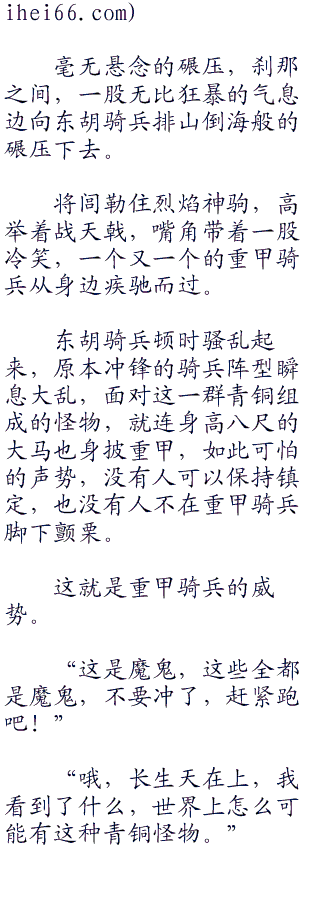 ihei66.com)
毫无悬念的碾压，刹那
之间，一股无比狂暴的气息
边向东胡骑兵排山倒海般的
碾压下去。
将闾勒住烈焰神驹，高
举着战天戟，嘴角带着一股
冷笑，一个又一个的重甲骑
兵从身边疾驰而过。
东胡骑兵顿时骚乱起
来，原本冲锋的骑兵阵型瞬
息大乱，面对这一群青铜组
成的怪物，就连身高八尺的
大马也身披重甲，如此可怕
的声势，没有人可以保持镇
定，也没有人不在重甲骑兵
脚下颤栗。
这就是重甲骑兵的威
势。
“这是魔鬼，这些全都
是魔鬼，不要冲了，赶紧跑
吧！”
“哦，长生天在上，我
看到了什么，世界上怎么可
能有这种青铜怪物。”